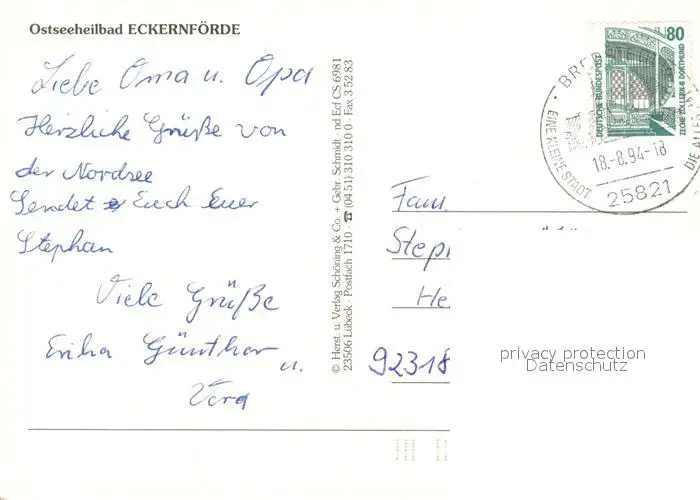 Ostseeheilbad ECKERNFÖRDE
Liebe Oma u. Opa
Herzliche Grüße von
der Nordsee
Sendet Euch Euer
Stephan
Viele Grüße
Erika Günther u.
Vera
© Herst. u. Verlag Schöning & Co. + Gebr. Schmidt · nd Ecf CS 6981
23506 Lübeck · Postfach 1710 · ☎ (04 51) 310 310 0 · Fax 3 52 83
80
DEUTSCHE BUNDESPOST
ZECHE ZOLLERN II DORTMUND
BRED
EINE KLEINE STADT
DIE ALLES
18.-8.94-18
25821
Fam.
Step
He
92318
privacy protection
Datenschutz